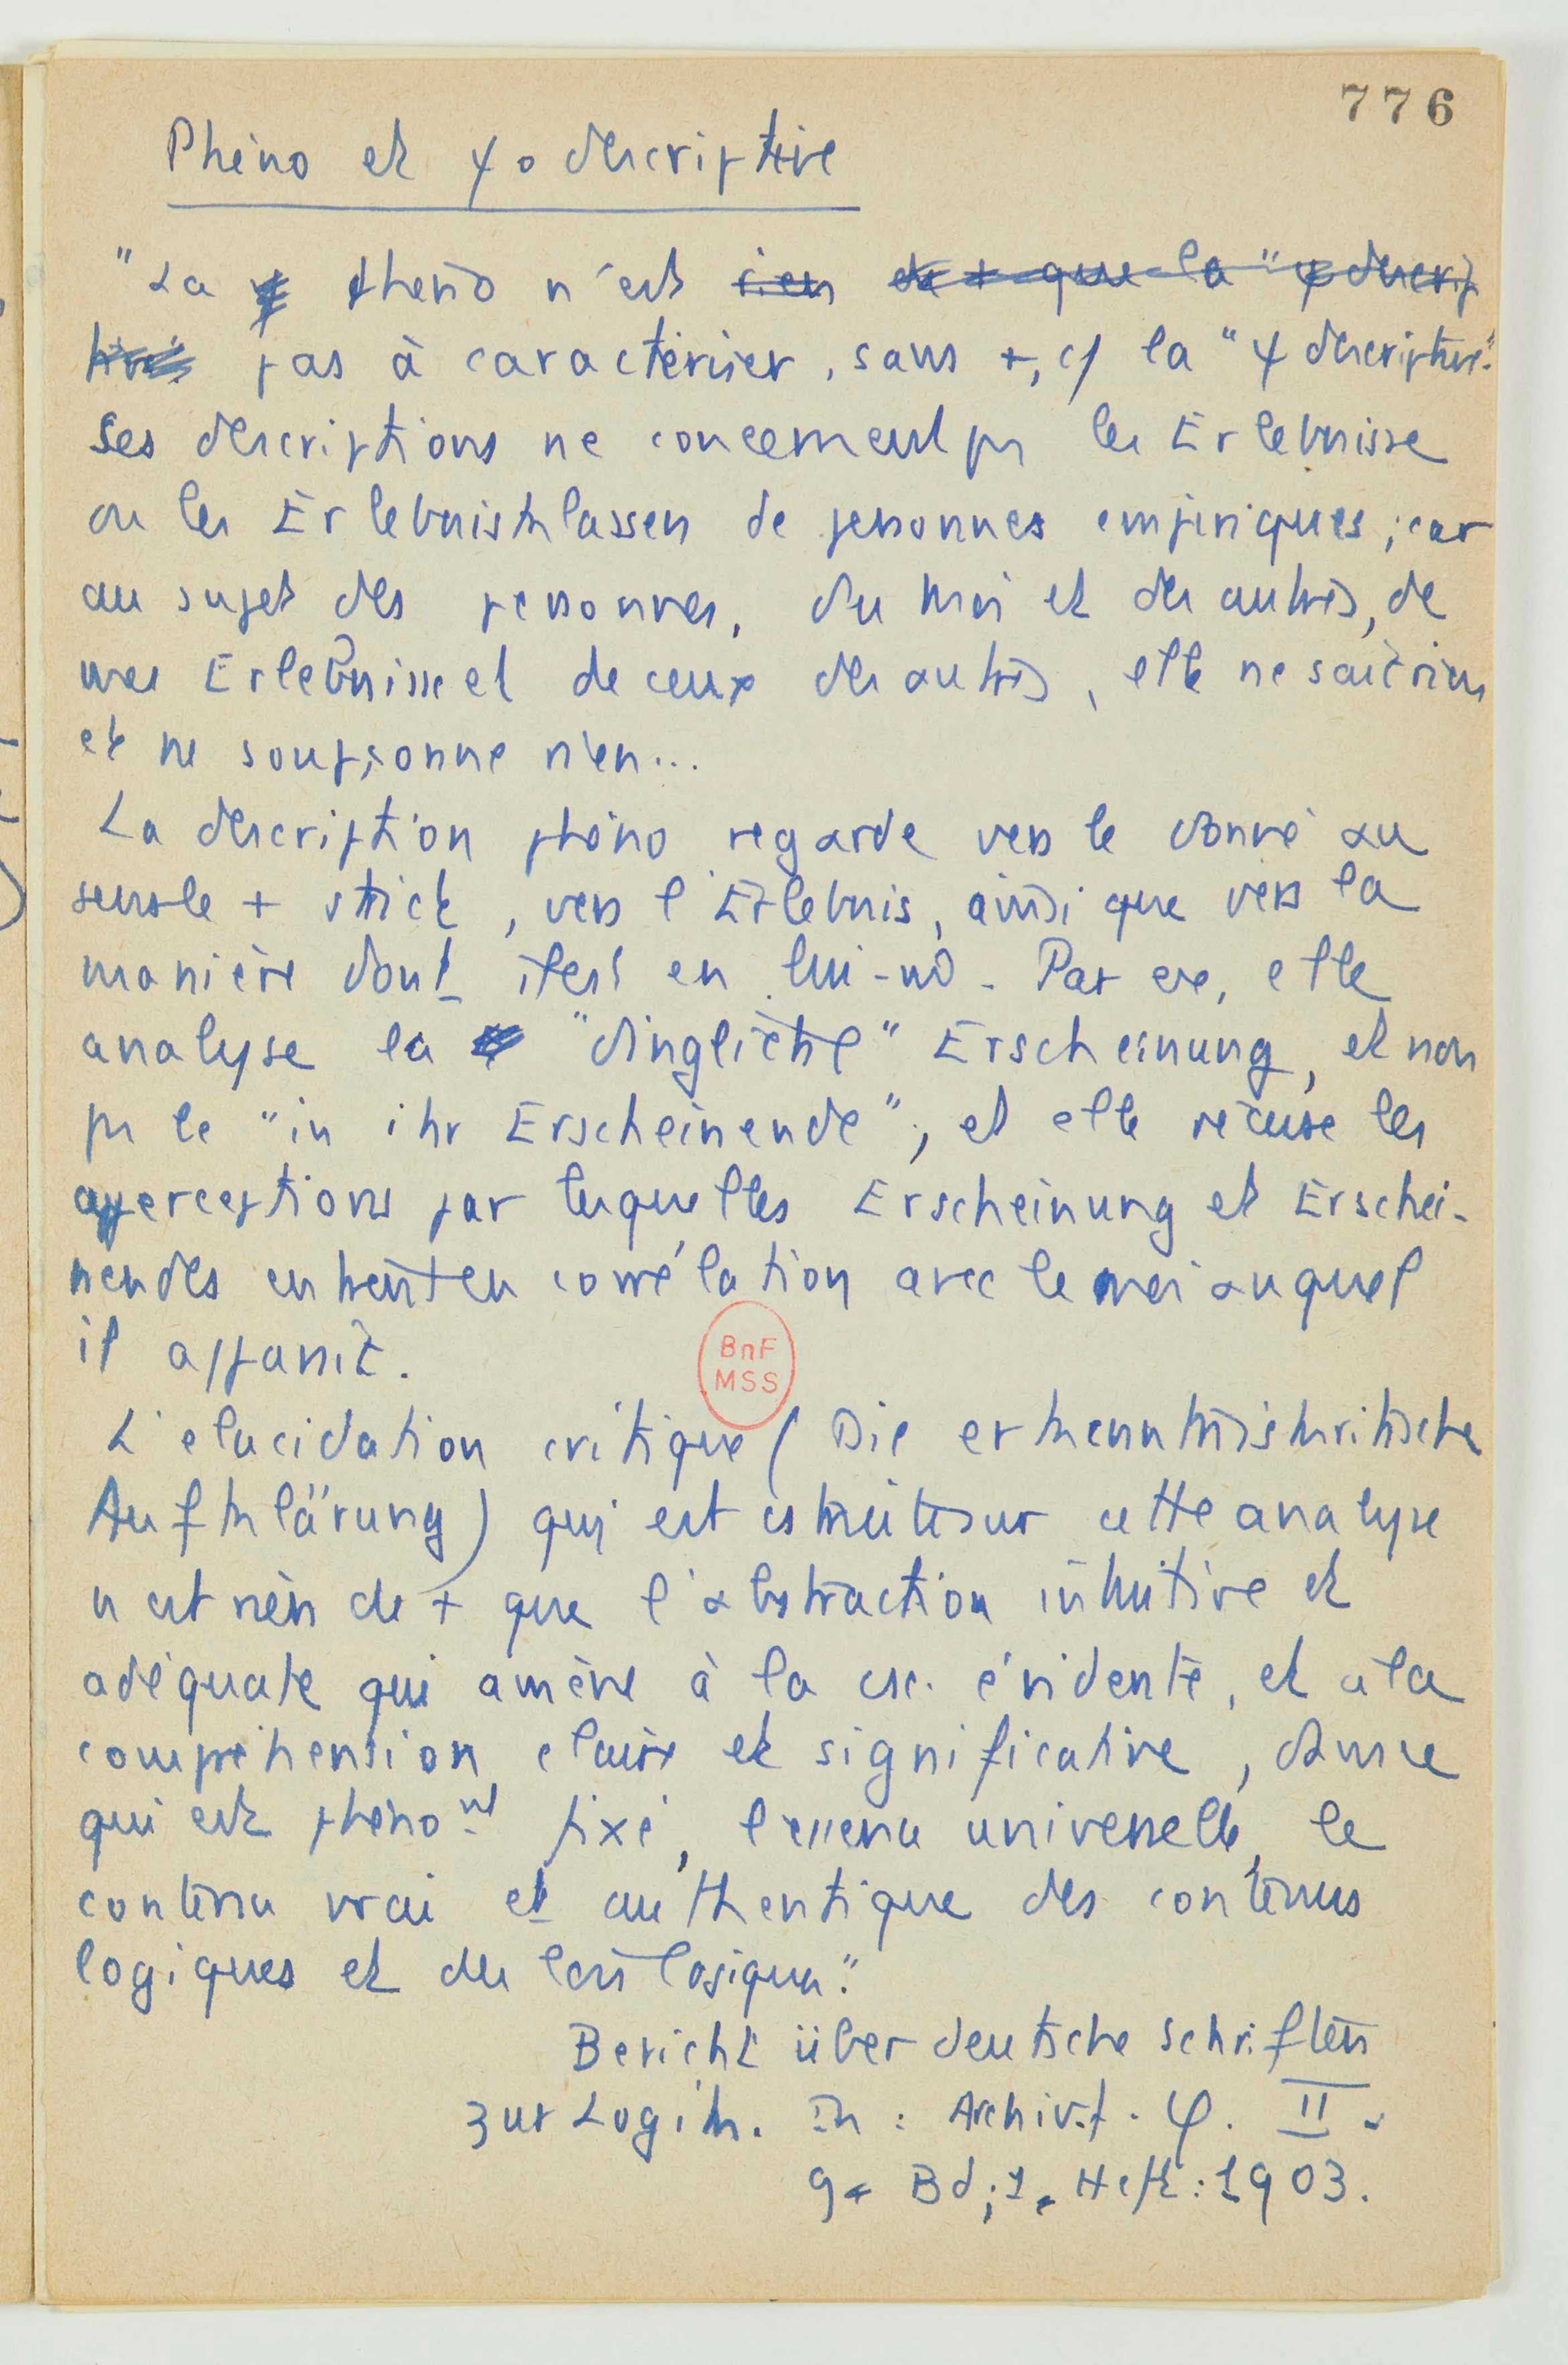 776
Phéno et ψo descriptive
"La phéno n'est rien de + que la "ψ descrip
tive" pas à caractériser, sans +, c/ la "ψ descriptive".
Ses descriptions ne concernent ps les Erlebnisse
ou les Erlebnisklassen de personnes empiriques ; car
au sujet des personnes, du moi et des autres, de
mes Erlebnisse et de ceux des autres, elle ne sait rien
et ne soupçonne rien...
La description phéno regarde vers le donné au
sens le + strict, vers l'Erlebnis, ainsi que vers la
manière dont il est en lui-m̂. Par ex, elle
analyse la "dingliche" Erscheinung, et non
ps le "in ihr Erscheinende" ; et elle récuse les
apperceptions par lesquelles Erscheinung et Erschei-
nendes entrent en corrélation avec le moi auquel
il apparaît.
BnF
MSS
L'élucidation critique (Die erkenntniskritische
Aufklärung) qui est cstruite sur cette analyse
n'est rien de + que l'abstraction intuitive et
adéquate qui amène à la csc. évidente, et à la
compréhension claire et significative, dans ce
qui est phéno nt fixé, l'essence universelle, le
contenu vrai et authentique des contenus
logiques et des lois logiques."
Bericht über deutsche Schriften
zur Logik. In : Archiv. f. φ. II.
9. Bd ; 1. Heft : 1903.